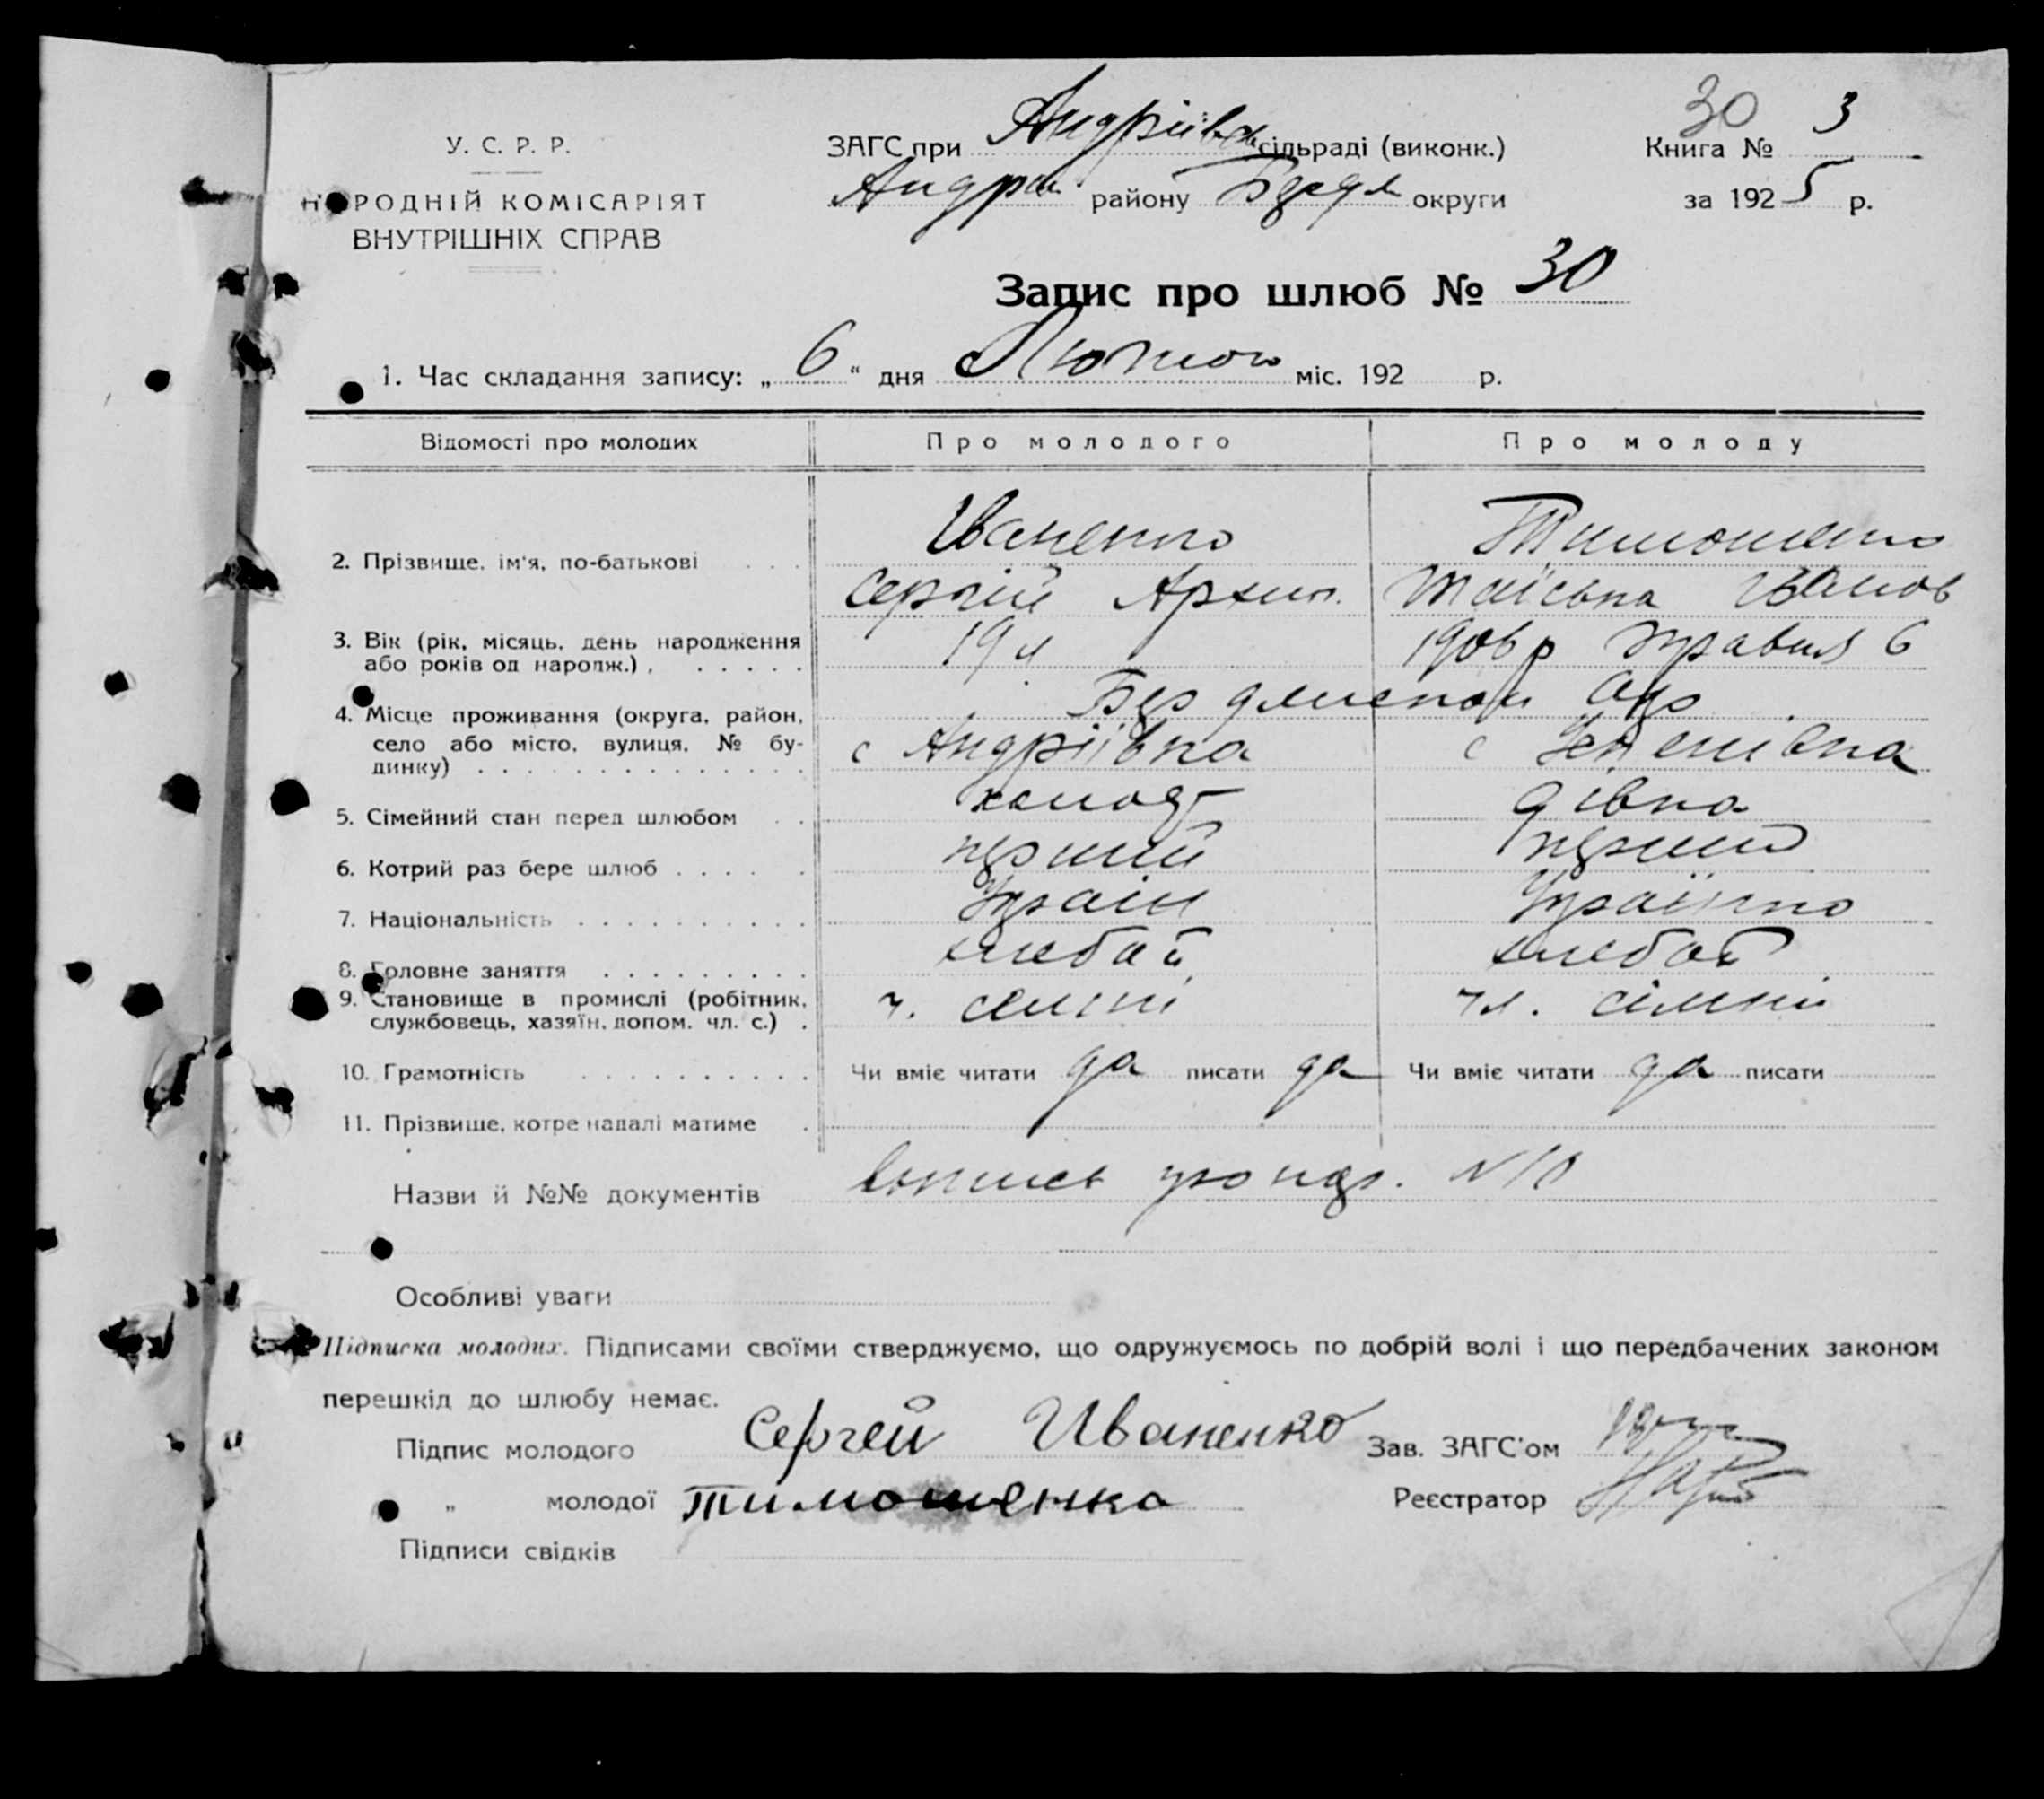 30 3
У. С. Р. Р.
ЗАГС при Андріївск сільраді (виконк.)
Книга №
НАРОДНІЙ КОМІСАРІЯТ
ВНУТРІШНІХ СПРАВ
Андрії району округи
за 1925 р.
Запис про шлюб № 30
1. Час складання запису: „6“ дня Лютого міс. 192 р.
Відомості про молодих
Про молодого
Про молоду
2. Прізвище, ім'я, по-батькові . . .
Іваненко
Сергій Архип.
Тимошенко
Таїська Іванов
3. Вік (рік, місяць, день народження
або років од народж.) , . . . . .
19 л
1906 р травня 6
4. Місце проживання (округа, район,
село або місто, вулиця, № бу-
динку) . . . . . . . . . . . . . .
Бердянской Окр
с Андріївка
с
5. Сімейний стан перед шлюбом . .
дівка
6. Котрий раз бере шлюб . . . . .
перший
перший
7. Національність . . . . . . . . . .
Україн
Українко
8. Головне заняття . . . . . . . . .
хлебоп
хлебоп
9. Становище в промислі (робітник,
службовець, хазяїн, допом. чл. с.) .
ч. семні
чл. сімні
10. Грамотність . . . . . . . . . .
Чи вміє читати да писати да
Чи вміє читати да писати
11. Прізвище, котре надалі матиме .
Назви й №№ документів
№ 10
Особливі уваги
Підписка молодих. Підписами своїми стверджуємо, що одружуємось по добрій волі і що передбачених законом
перешкід до шлюбу немає.
Підпис молодого Сергей Иваненко
Зав. ЗАГС'ом
„ молодої Тимошенка
Реєстратор
Підписи свідків